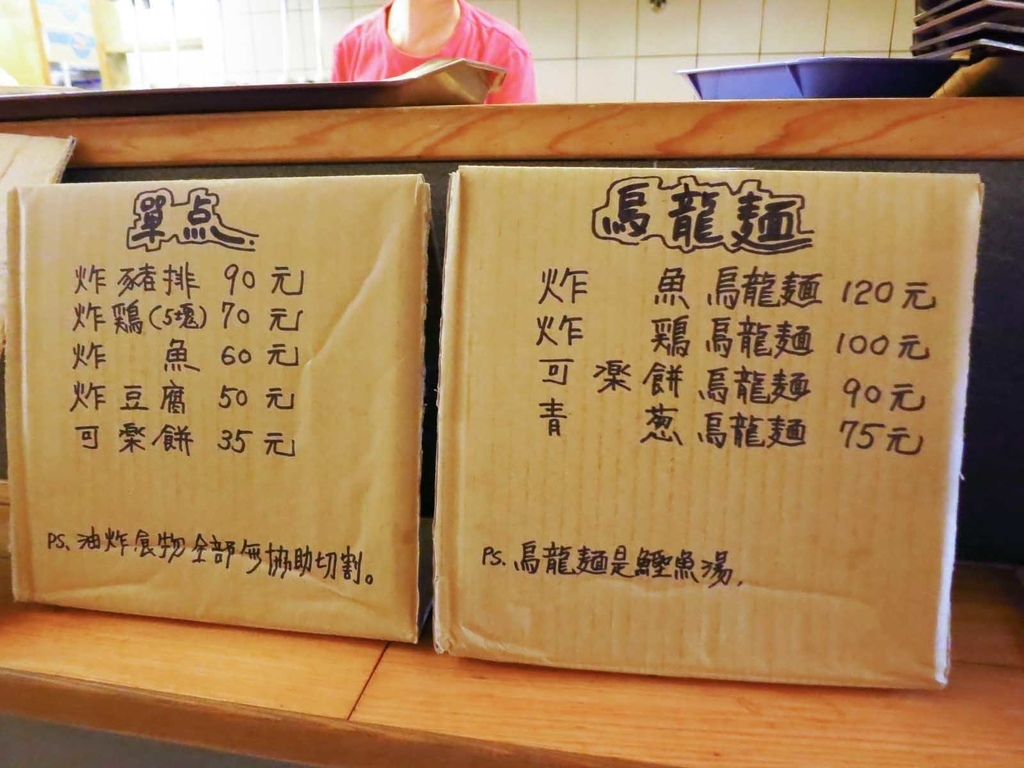 單点
炸豬排 90元
炸鶏(5塊) 70元
炸 魚 60元
炸豆腐 50元
可楽餅 35元
PS. 油炸食物全部無協助切割。
烏龍麵
炸 魚烏龍麵 120元
炸 鶏烏龍麵 100元
可楽餅烏龍麵 90元
青 葱烏龍麵 75元
PS. 烏龍麵是鰹魚湯.